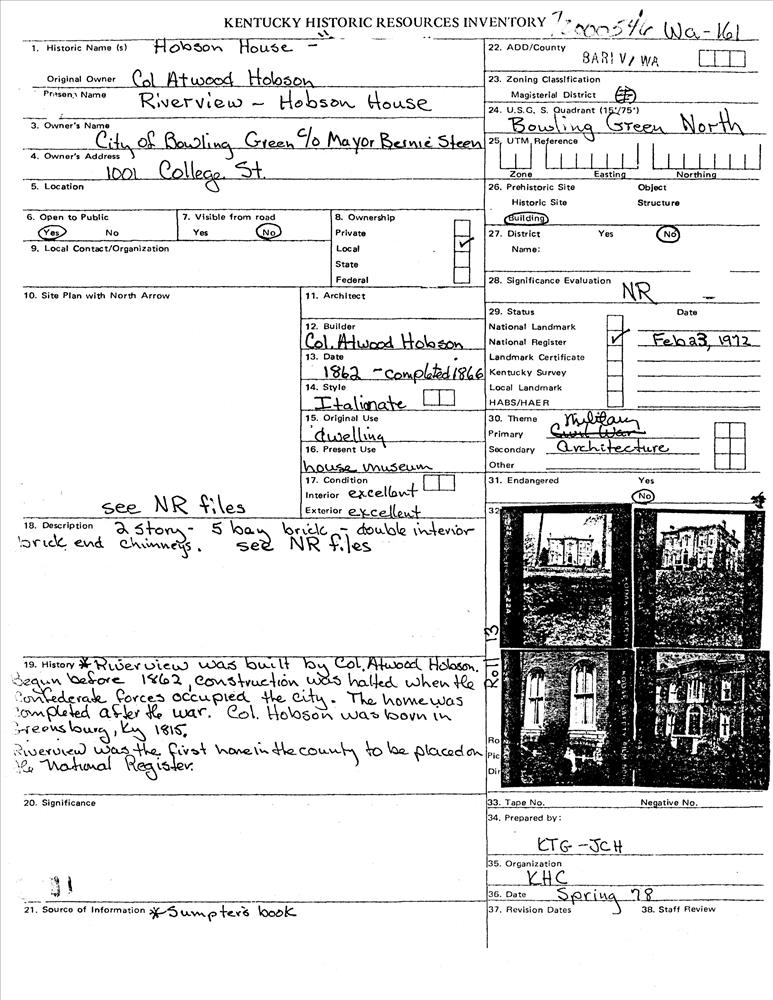 KENTUCKY HISTORIC RESOURCES INVENTORY
Wa-161
1. Historic Name (s) Hobson House -
Original Owner Col Atwood Hobson
Present Name Riverview - Hobson House
3. Owner's Name City of Bowling Green c/o Mayor Bernie Steen
4. Owner's Address 1001 College St.
5. Location
6. Open to Public
Yes No
7. Visible from road
Yes No
8. Ownership
Private
Local ✓
State
Federal
9. Local Contact/Organization
10. Site Plan with North Arrow
see NR files
11. Architect
12. Builder
Col. Atwood Hobson
13. Date
1862 - completed 1866
14. Style
Italianate
15. Original Use
dwelling
16. Present Use
house museum
17. Condition
Interior excellent
Exterior excellent
18. Description 2 story - 5 bay brick - double interior
brick end chimneys. see NR files
19. History * Riverview was built by Col. Atwood Hobson.
Begun before 1862, construction was halted when the
Confederate forces occupied the city. The home was
completed after the war. Col. Hobson was born in
Greensburg, Ky 1815.
Riverview was the first home in the county to be placed on
the National Register.
20. Significance
21. Source of Information * Sumpter's book
22. ADD/County
BARIV/WA
23. Zoning Classification
Magisterial District
24. U.S.G. S. Quadrant (15'/75')
Bowling Green North
25. UTM Reference
Zone Easting Northing
26. Prehistoric Site Object
Historic Site Structure
Building
27. District Yes No
Name:
28. Significance Evaluation
NR -
29. Status Date
National Landmark
National Register ✓ Feb 23, 1972
Landmark Certificate
Kentucky Survey
Local Landmark
HABS/HAER
30. Theme Military
Primary Civil War
Secondary architecture
Other
31. Endangered Yes
No
32
Roll 13
Ro
Pic
Dir
33. Tape No. Negative No.
34. Prepared by:
KTG - JCH
35. Organization
KHC
36. Date Spring 78
37. Revision Dates 38. Staff Review